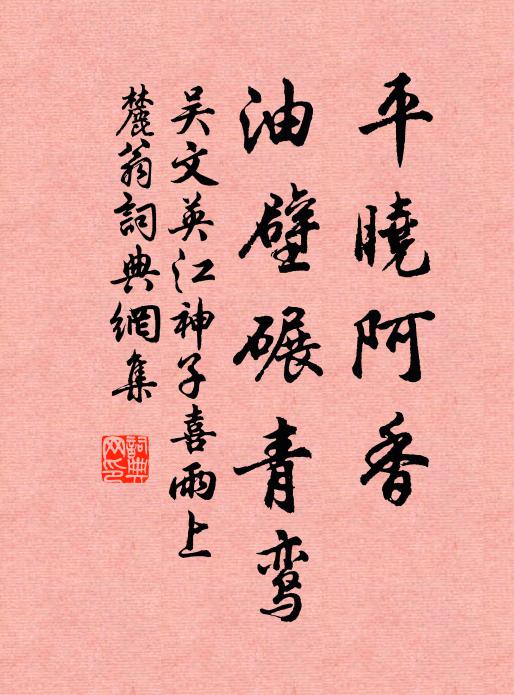 平曉阿香
油壁碾青鸾
吴文英江神子喜雨上
麓翁詞典網集
詞典網印